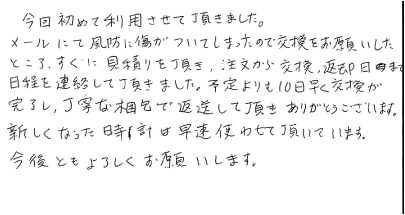 今回初めて利用させて頂きました。
メールにて風防に傷がついてしまったので交換をお願いした
ところ、すぐに見積りを頂き、注文から交換、返却日まで
日程を連絡して頂きました。予定よりも10日早く交換が
完了し、丁寧な梱包で返送して頂きありがとうございます。
新しくなった時計は早速使わせて頂いています。
今後ともよろしくお願いします。